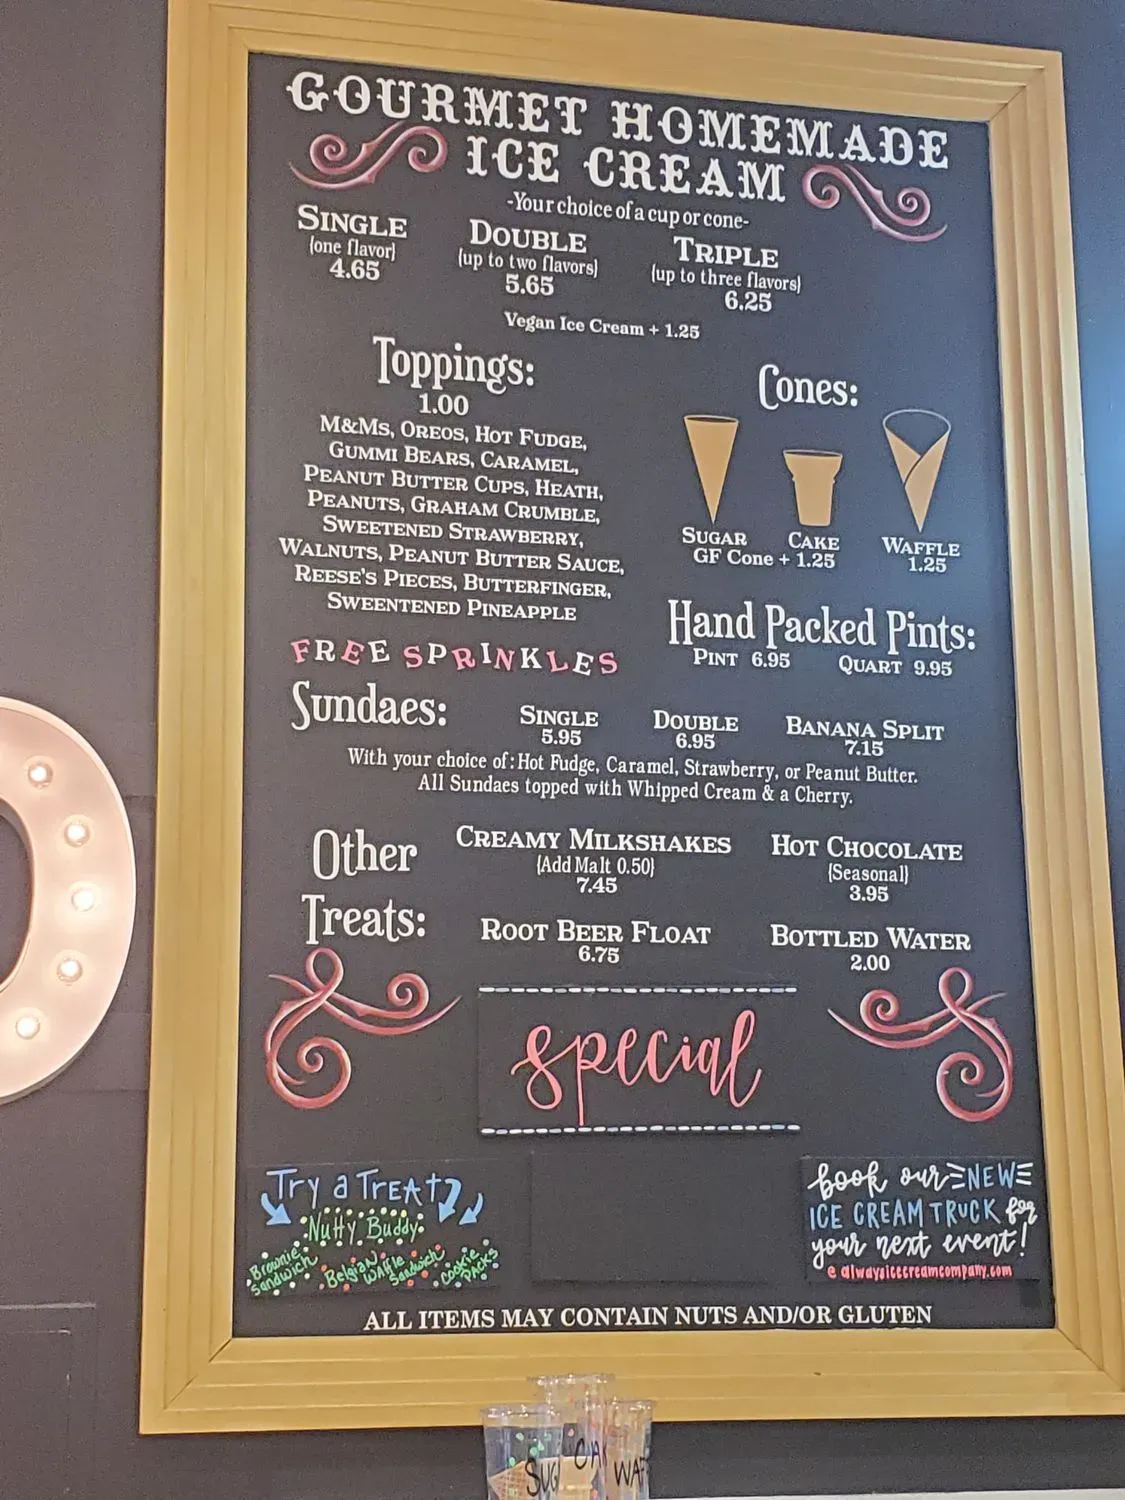 GOURMET HOMEMADE
ICE CREAM
-Your choice of a cup or cone-
SINGLE
(one flavor)
4.65
DOUBLE
(up to two flavors)
5.65
TRIPLE
(up to three flavors)
6.25
Vegan Ice Cream + 1.25
Toppings:
1.00
M&MS, OREOS, HOT FUDGE,
GUMMI BEARS, CARAMEL,
PEANUT BUTTER CUPS, HEATH,
PEANUTS, GRAHAM CRUMBLE,
SWEETENED STRAWBERRY,
WALNUTS, PEANUT BUTTER SAUCE,
REESE'S PIECES, BUTTERFINGER,
SWEENTENED PINEAPPLE
FREE SPRINKLES
Cones:
SUGAR CAKE
GF Cone + 1.25
WAFFLE
1.25
Hand Packed Pints:
PINT 6.95 QUART 9.95
Sundaes:
SINGLE
5.95
DOUBLE
6.95
BANANA SPLIT
7.15
With your choice of: Hot Fudge, Caramel, Strawberry, or Peanut Butter.
All Sundaes topped with Whipped Cream & a Cherry.
Other
Treats:
CREAMY MILKSHAKES
(Add Malt 0.50)
7.45
HOT CHOCOLATE
(Seasonal)
3.95
ROOT BEER FLOAT
6.75
BOTTLED WATER
2.00
special
Try a TREAT
Nutty Buddy
Brownie
Sandwich
Belgian
Waffle
Sandwich
Cookie
PACKS
book our NEW
ICE CREAM TRUCK for
your next event!
@ alwaysicecreamcompany.com
ALL ITEMS MAY CONTAIN NUTS AND/OR GLUTEN
SUG
CA
WAF